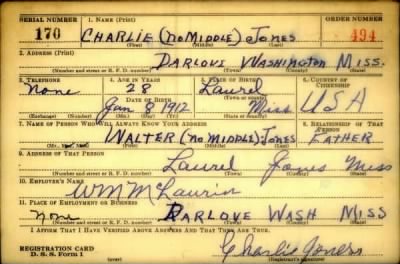 SERIAL NUMBER 1. NAME (Print) ORDER NUMBER
170 CHARLIE (NO MIDDLE) JONES 494
(First) (Middle) (Last)
2. ADDRESS (Print)
DARLOVE WASHINGTON MISS.
(Number and street or R. F. D. number) (Town) (County) (State)
3. TELEPHONE 4. AGE IN YEARS 5. PLACE OF BIRTH 6. COUNTRY OF CITIZENSHIP
None 28 Laurel
DATE OF BIRTH (Town or county)
Jan 8 1912 Miss USA
(Exchange) (Number) (Mo.) (Day) (Yr.) (State or country)
7. NAME OF PERSON WHO WILL ALWAYS KNOW YOUR ADDRESS 8. RELATIONSHIP OF THAT PERSON
WALTER (NO MIDDLE) JONES FATHER
(Mr., Mrs., Miss) (First) (Middle) (Last)
9. ADDRESS OF THAT PERSON
Laurel Jones Miss
(Number and street or R. F. D. number) (Town) (County) (State)
10. EMPLOYER'S NAME
Wm McLaurin
11. PLACE OF EMPLOYMENT OR BUSINESS
None DARLOVE WASH MISS
(Number and street or R. F. D. number) (Town) (County) (State)
I AFFIRM THAT I HAVE VERIFIED ABOVE ANSWERS AND THAT THEY ARE TRUE.
REGISTRATION CARD
D. S. S. Form 1 Charlie Jones
(over) (Registrant's signature)